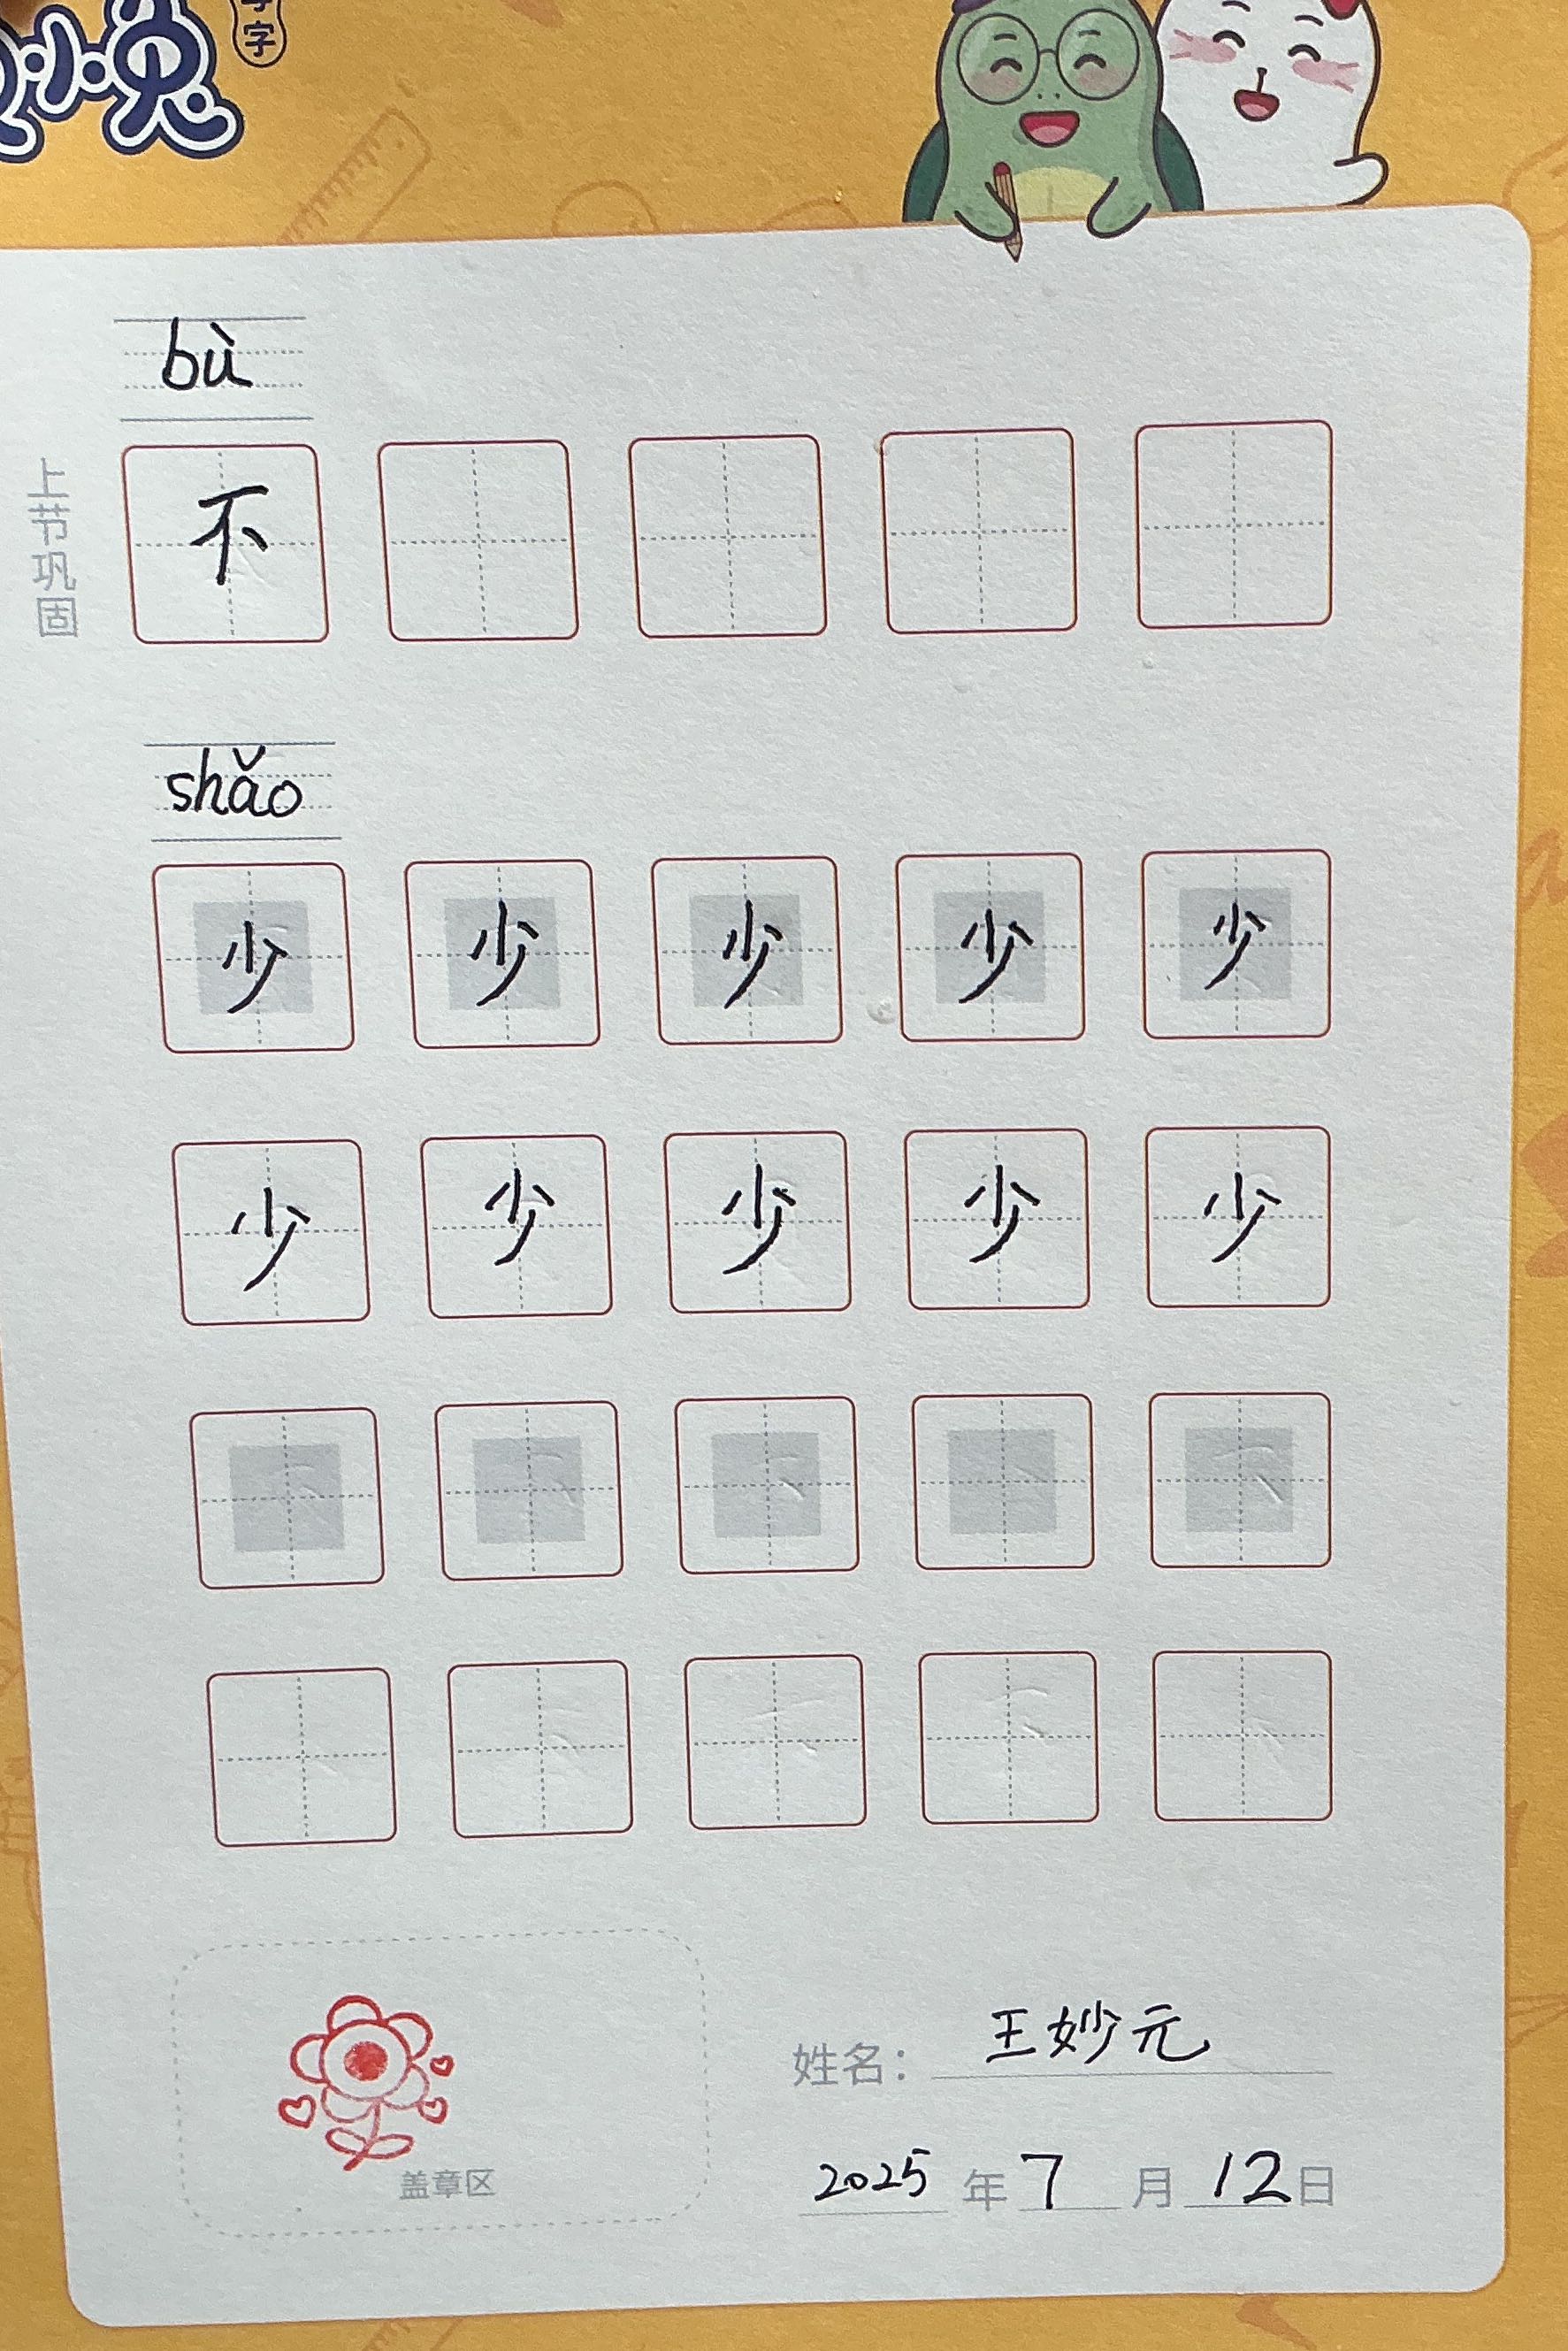 字
小兔
bù
上节巩固
不
shǎo
少 少 少 少 少
少 少 少 少 少
姓名： 王妙元
盖章区
2025 年 7 月 12 日